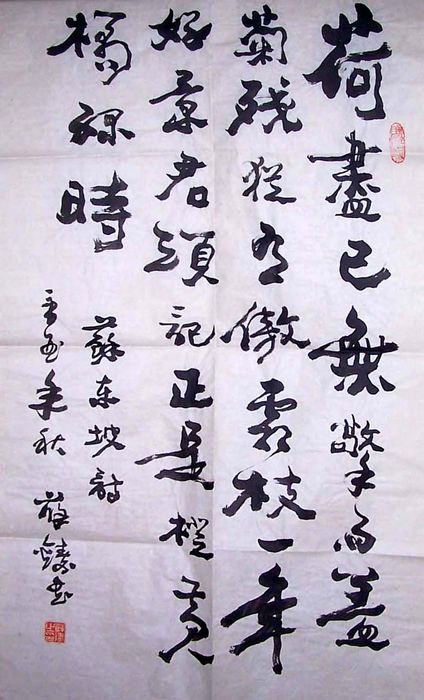 荷盡已無擎雨蓋
菊殘猶有傲霜枝一年
好景君須記正是橙黄
橘緑時
蘇東坡詩
年秋 書